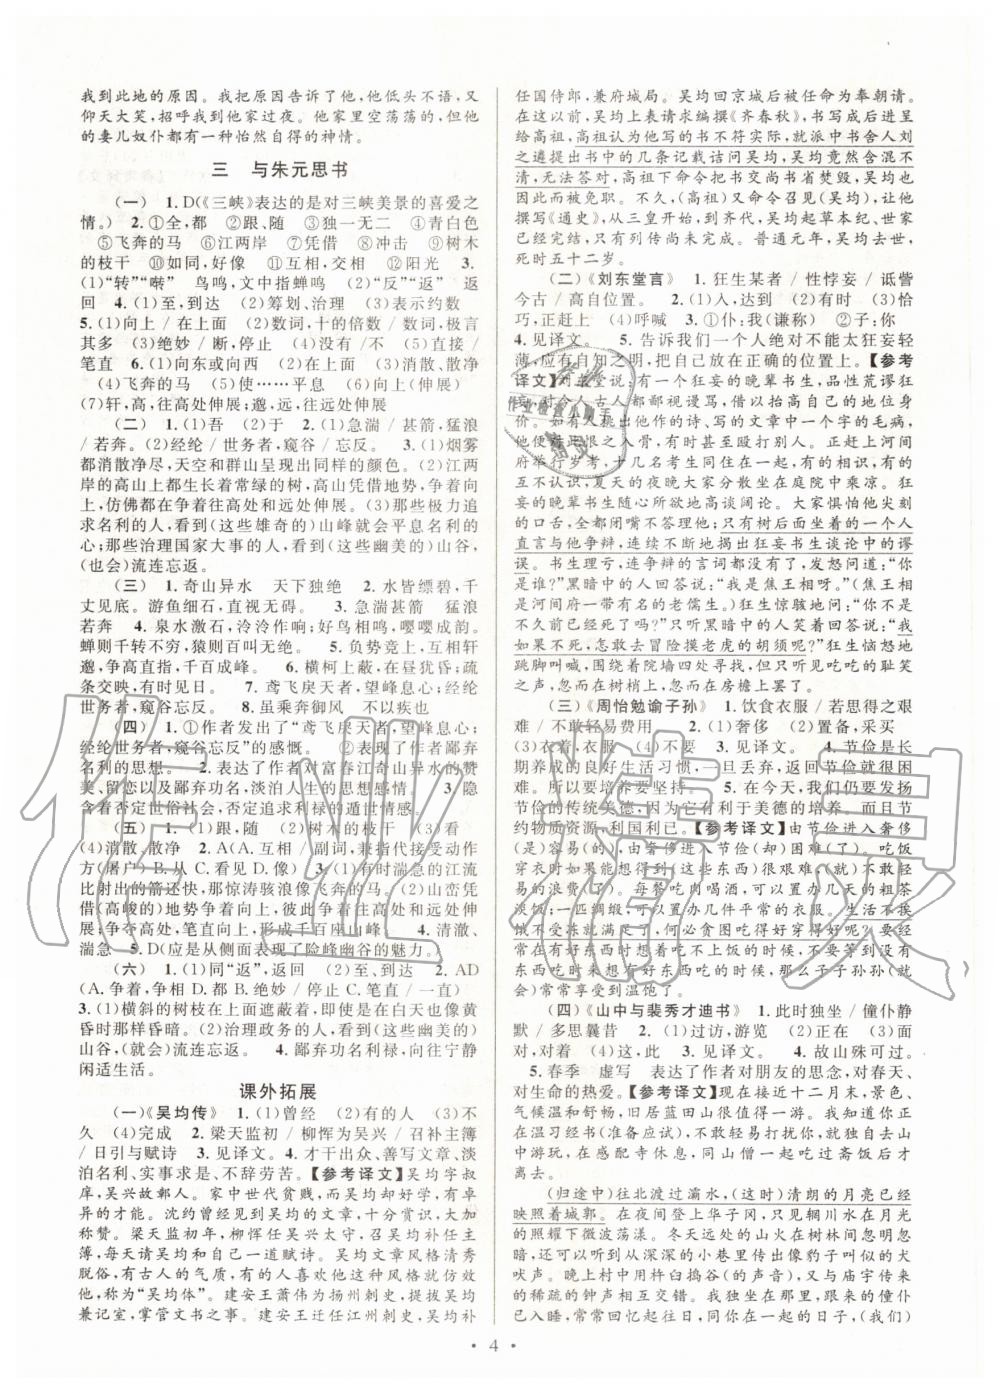 我到此地的原因。我把原因告诉了他,他低头不语,又
仰天大笑,招呼我到他家过夜。他家里空荡荡的,但他
的妻儿奴仆都有一种怡然自得的神情。
三 与朱元思书
(一) 1.D(《三峡》表达的是对三峡美景的喜爱之
情。) 2.①全,都 ②跟、随 ③独一无二 ④青白色
⑤飞奔的马 ⑥江两岸 ⑦凭借 ⑧冲击 ⑨树木
的枝干 ⑩如同,好像 ⑪互相,互相 ⑫阳光 3.
(1)“转”“啭” 鸟鸣,文中指蝉鸣 (2)“反”“返” 返
回 4.(1)至,到达 (2)筹划、治理 (3)表示约数
5.(1)向上 / 在上面 (2)数词,十的倍数 / 数词,极言
其多 (3)绝妙 / 断,停止 (4)没有 / 不 (5)互相 /
笔直 6.(1)向东或向西 (2)在上面 (3)消散、散净
(4)飞奔的马 (5)使……平息 (6)向上(伸展)
(7)轩,高,往高处伸展;邈,远,往远处伸展
(二) 1.(1)吾 (2)于 2.(1)急湍 / 甚箭,猛浪
/ 若奔。(2)经纶 / 世务者,窥谷 / 忘反。 3.(1)烟雾
都消散净尽,天空和群山呈现出同样的颜色。(2)江两
岸的高山上全都生长着常绿的树;高山凭借地势,争着向
上,仿佛都在争着往高处和远处伸展。(3)那些极力追
求名利的人,看到(这些雄奇的)山峰就会平息名利的
心;那些治理国家大事的人,看到(这些幽美的)山谷,
(也会)流连忘返。
(三) 1.奇山异水 天下独绝 2.水皆缥碧,千
丈见底。游鱼细石,直视无碍。 3.急湍甚箭 猛浪
若奔 4.泉水激石,泠泠作响;好鸟相鸣,嘤嘤成韵。
蝉则千转不穷,猿则百叫无绝。 5.负势竞上,互相轩
邈,争高直指,千百成峰。 6.横柯上蔽,在昼犹昏;疏
条交映,有时见日。 7.鸢飞戾天者,望峰息心;经纶
世务者,窥谷忘反 8.虽乘奔御风 不以疾也
(四) 1.①作者发出了“鸢飞戾天者,望峰息心;
经纶世务者,窥谷忘反”的感慨。 ②表达了作者鄙弃
名利的思想。 2.表达了作者对富春江奇山异水的赞
美,留恋以及鄙弃功名,淡泊人生的思想感情。 3.隐
含着否定世俗社会,否定追求利禄的遁世情感。
(五) 1.(1)跟,随 (2)树木的枝干 (3)看
(4)消散,散净 2.A(A.副词,兼指代接受动作的
一方 / 副词,互相 B.从 C.看见 D.像) 3.(1)湍急的江流
比射出的箭还快,那惊涛骇浪像飞奔的马。 (2)山峦凭
着(高峻的)地势争着向上,彼此争着往高处和远处伸
展,争着向高处挺立,形成了千百座山峰。 4.清澈、
湍急 5.D(应是从侧面表现了险峰幽谷的魅力。)
(六) 1.(1)同“返”,返回 (2)至,到达 2.AD
(A.争着,争着 C.都,没有 B.绝妙 / 停止 C.笔直 / 一直)
3.(1)横斜的树枝在上面遮蔽着,即使是在白天也像黄
昏时那样昏暗。 (2)治理政务的人,看到(这些幽美的)
山谷,(就会)流连忘返。 4.鄙弃功名利禄,向往宁静
闲适生活。
课外拓展
(一)《吴均传》 1.(1)曾经 (2)有的人 (3)不
久 (4)完成 2.梁天监初 / 柳恽为吴兴 / 召补主簿
/ 日引与赋诗 3.见译文。 4.才干出众、善写文章、淡
泊名利、实事求是、不辞劳苦。【参考译文】吴均字叔
庠,吴兴故鄣人。家中世代贫贱,而吴均却好学,有卓
异的才能。沈约曾经见到吴均的文章,十分赏识,大加
称赞。梁天监初年,柳恽任吴兴刺史,召吴均补任主
簿,每天请吴均和自己一同赋诗。吴均文章风格清秀
脱俗,有古人的气质,有的人喜欢他这种风格就仿效
他,称为“吴均体”。建安王萧伟为扬州刺史,提吴均
兼记室,掌管文书之事。建安王迁任江州刺史,吴均补
任国侍郎,兼府城局。吴均回京城后被任命为奉朝请。
在这以前,吴均上表请求编撰《齐春秋》。书写成后进呈
给高祖,高祖认为他的书不符实际,就派中书舍人刘
之遴提出书中的几条记载诘问吴均,吴均竟然含混不
清,无法答对,高祖下令将书稿交尚书省焚毁,吴均也
因此而被免职。不久,(高祖)又命令召见(吴均),让他
撰写《通史》,从三皇开始,到齐代,吴均起草本纪、世家
已经完成,只有列传尚未完成。普通元年,吴均去世,
死时五十二岁。
(二)《刘东堂言》 1.狂生某者 / 性悖妄 / 诋訾
今古 / 高自位置。 2.(1)人,达到 (2)有时 (3)恰
巧,正赶上 (4)呼喊 3.①仆:我(谦称) ②子:你
4.见译文。 5.告诉我们一个人绝对不能太狂妄轻
薄,应有自知之明,把自己放在正确的位置上。【参考
译文】刘东堂说,有一个狂妄的晚辈书生,品性荒谬狂
妄,对今人古人都随意谩骂,经常抬高自己的地位身
价。如果有人挑出他的诗句、写的文章中一个字的毛病,
他便衔此恨之入骨,有时甚至殴打人家。正赶上河间
府举行岁考,十几名考生同住在一起,有的相识,有的
互不认识,夏天的夜晚大家分散坐在庭院中乘凉。狂
妄的晚辈书生随心所欲地高谈阔论。大家都惧怕他尖刻
的口舌,全都闭嘴不答理他;只有树后面坐着的一个人
直言与他争辩,连续不断地揭出狂妄书生谈论中的谬
误。书生理亏,连争辩的言词都没有了,发怒问道:“你
是谁?”黑暗中的人回答说:“我是焦王相呀。”(焦王相
是河间府有名的老儒生。)狂生惊骇地问道:“你不是
不久前已经死了吗?”只听黑暗中的人笑着回答说:“我
如果不死,怎敢去冒险摸老虎的胡须呢?”狂生恼怒地
跳脚叫喊,围绕着院墙四处寻找,但只听见吃吃的耻笑
之声,忽而在树梢上,忽而在房檐上罢了。
(三)《周怡勉谕子孙》 1.饮食衣服 / 若思得之艰
难 / 不敢轻易费用 2.(1)奢侈 (2)置备,采买
(3)衣着,衣服 (4)不要 3.见译文。 4.节俭是长
期养成的良好生活习惯,一旦丢弃,返回节俭就很困
难。所以,培养节俭要坚持。 5.在今天,我们仍要发扬
节俭的传统美德,因为它有利于美德的培养。而且又
节约物质资源,利国利己。【参考译文】由节俭进入奢侈
(是)容易(的),由奢侈进入节俭(却)困难了。吃饭
穿衣时如果能想到,得到(这些东西)很艰难,(就)不会轻
易地浪费了。每餐吃肉喝酒的花费,可以置办几天的粗茶
淡饭;一匹绸缎,可以置办几件平常的衣服。生活不挨
饿不受冻就够了,何必贪图吃得好穿得好呢?
在有好东西吃时多想到吃不上饭的时候,不要等到没有
东西吃时再想有好东西吃的时候,那么子子孙孙(就
会)常常享受到温饱了。
(四)《山中与裴秀才迪书》 1.此时独坐 / 僮仆静
默 / 多思曩昔 2.(1)过访,游览 (2)正在 (3)面
对,对 (4)这,此 3.见译文。 4.故山殊可过。
5.春季 虚写 表达了作者对朋友的思念,对春天、
对生命的热爱。【参考译文】现在接近十二月末,景色、
气候温和舒畅,旧居蓝田山很值得一游。您(指裴迪)正
在温习经书(准备应试),不敢打扰,我就独自去山
中游玩,在感配寺休息,同山僧一起吃完饭后才离去。
(归途中)往北渡过灞水,(这时)清朗的月亮已经
映照着城郭。在夜间登上华子冈,只见辋川水在月光
的照耀下微波荡漾。冬天远处的山火在树林间忽明忽
暗,可以听到从深深的小巷里传出像豹子叫一样的犬
吠声。晚上村中用杵臼捣谷(的声音),又与庙宇传来
的稀疏的钟声相互交错。我独自坐着,跟来的僮仆
已入睡,常常回忆同你在一起的日子,(我们)
• 4 •